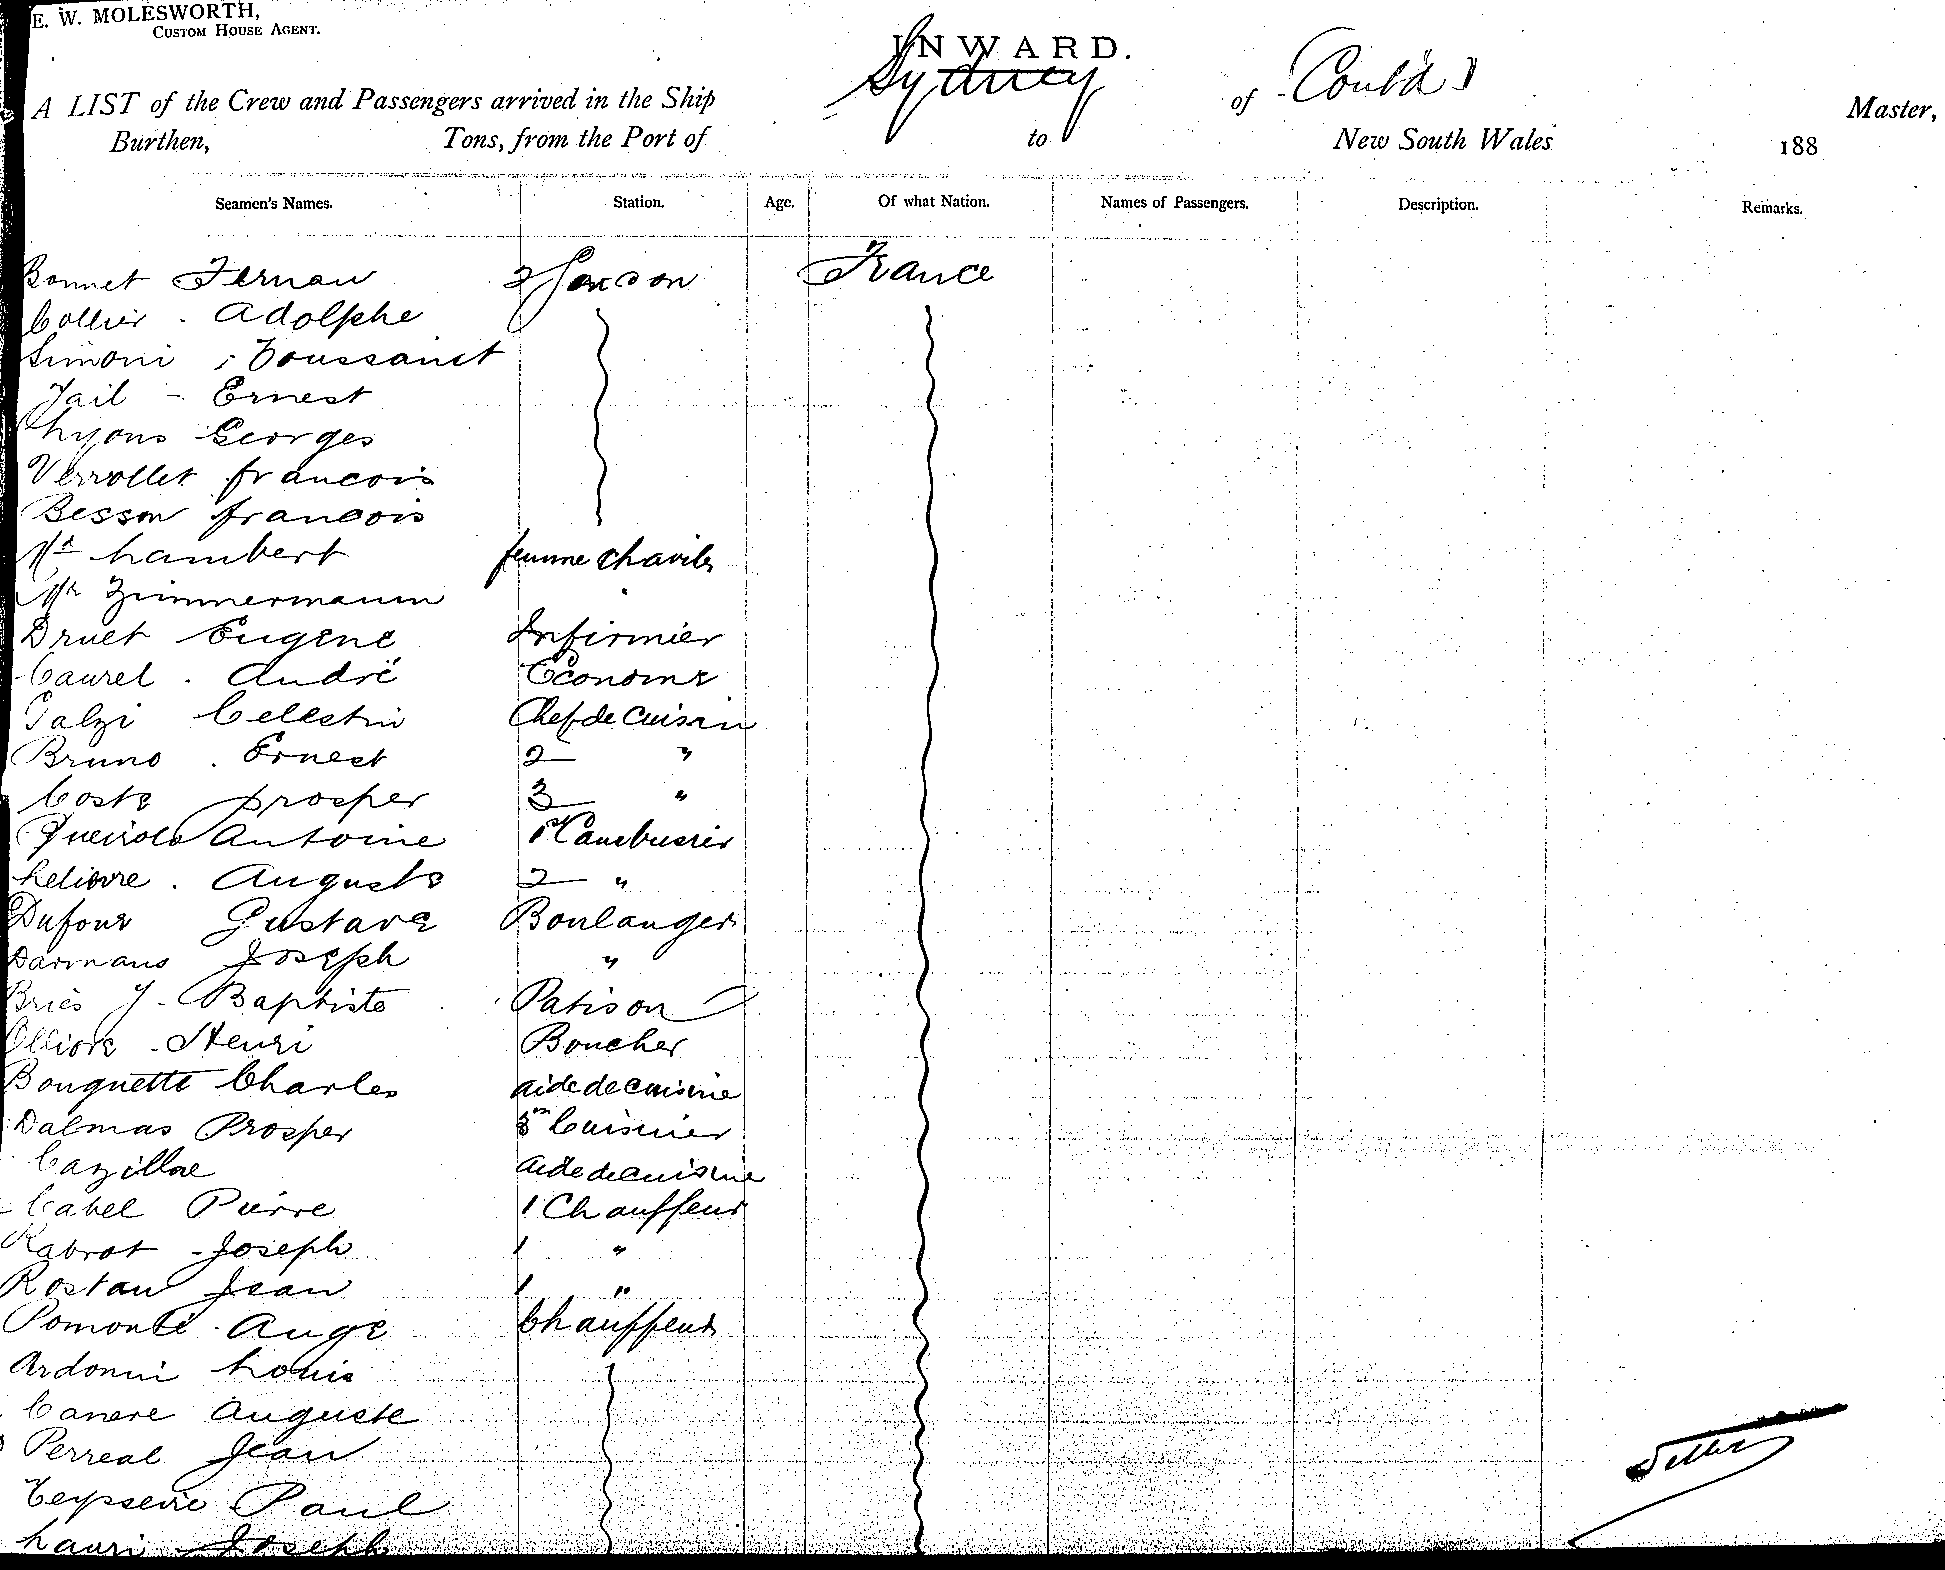 E. W. MOLESWORTH,
CUSTOM HOUSE AGENT.
INWARD.
A LIST of the Crew and Passengers arrived in the Ship Sydney of (Cont'd) Master,
Burthen, Tons, from the Port of to New South Wales 188
Seamen's Names. Station. Age. Of what Nation. Names of Passengers. Description. Remarks.
Bonnet Fernan 2 Garcon France
Collier. Adolphe
Simoni, Toussainct
Jail - Ernest
Lyons Georges
Verrollet francois
Besson francois
Lambert femme chambr
Zimmermann "
Druet Eugene Infirmier
Caurel. André Econome
Galzi Celestin Chef de Cuisin
Bruno. Ernest 2 "
Coste prosper 3 "
Queirolo Antoine 1er Cambusier
Lelievre. Auguste 2 "
Dufour Gustave Boulanger
Darmans Joseph "
Bries J. Baptiste Patison
Olliore - Henri Boucher
Bouquette Charles aide de cuisine
Dalmas Prosper 3m Cuisinier
Cazillac aide de cuisine
Cabel Pierre 1 Chauffeur
Rabrot - Joseph 1 "
Rostan Jean 1 "
Pomonte. Ange Chauffeur
Ardonni Louis
Canere Auguste
Perreal Jean
Teysseire Paul
Lauri - Joseph